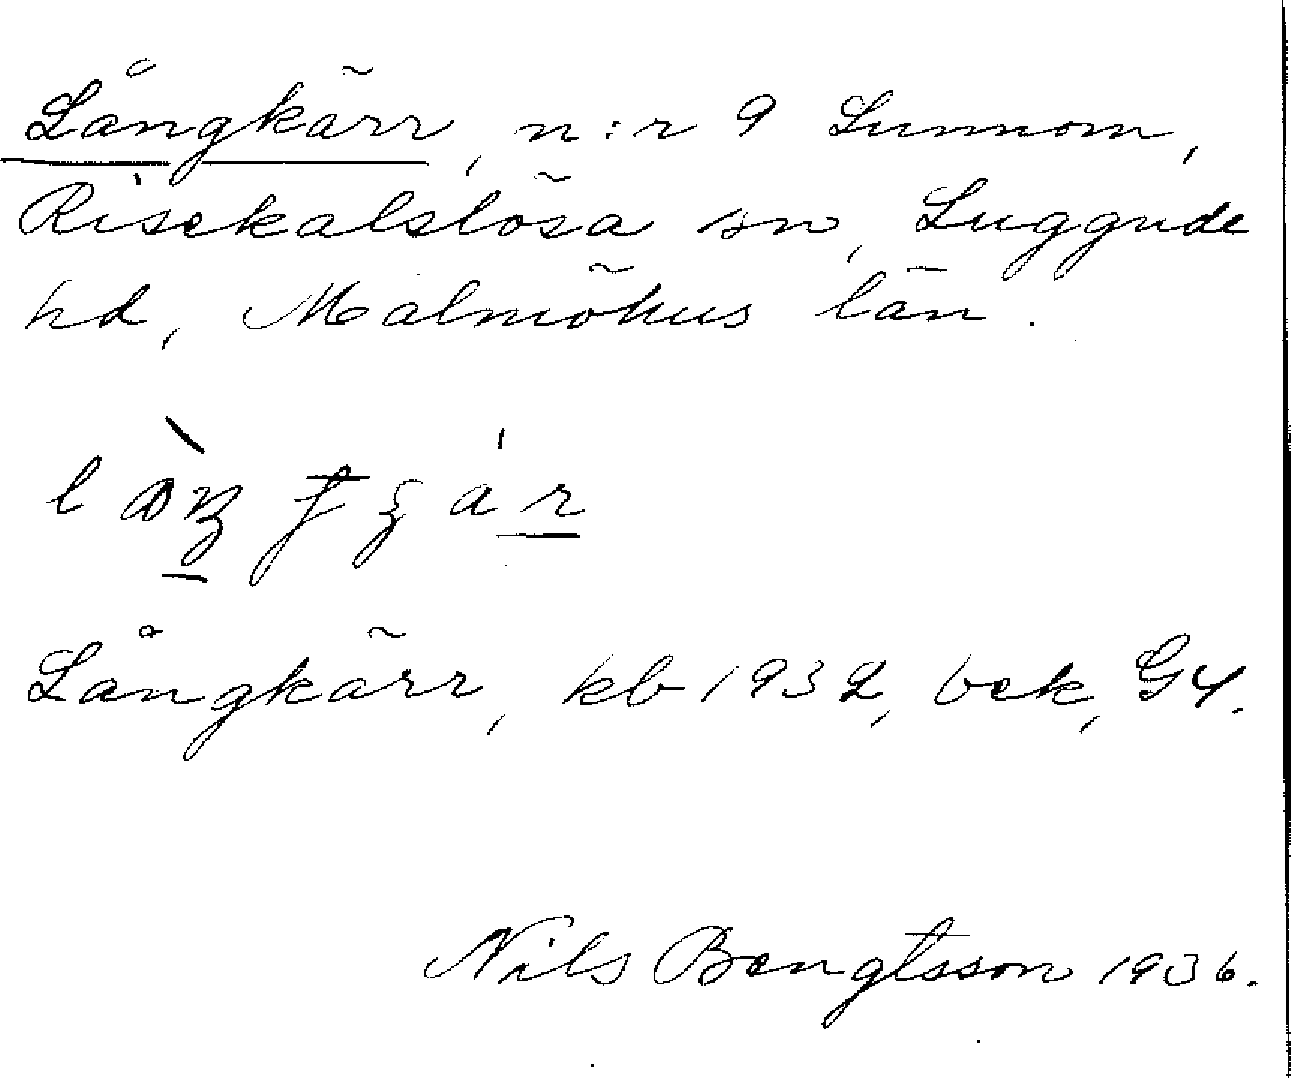 Långkärr, n:r 9 Lunnom,
Risekatslösa sn, Luggude
hd, Malmöhus län.
Långkärr, kb 1932, bek, G4.
Nils Bengtsson 1936.